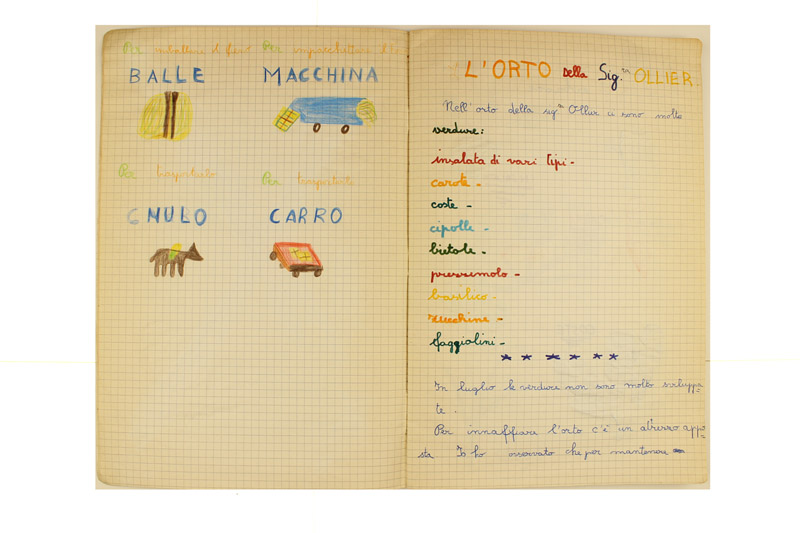 Per imballare il fieno
Per impacchettare il
BALLE
MACCHINA
Per trasportarlo
Per trasportarlo
MULO
CARRO
L'ORTO della Sig.ra OLLIER
Nell'orto della sig.ra Ollier ci sono molte
verdure:
insalata di vari tipi -
carote -
coste -
cipolle -
bietole -
prezzemolo -
basilico -
zucchine -
faggiolini -
In luglio le verdure non sono molto sviluppa
te.
Per innaffiare l'orto c'è un attrezzo appo
sta Io ho osservato che per mantenere